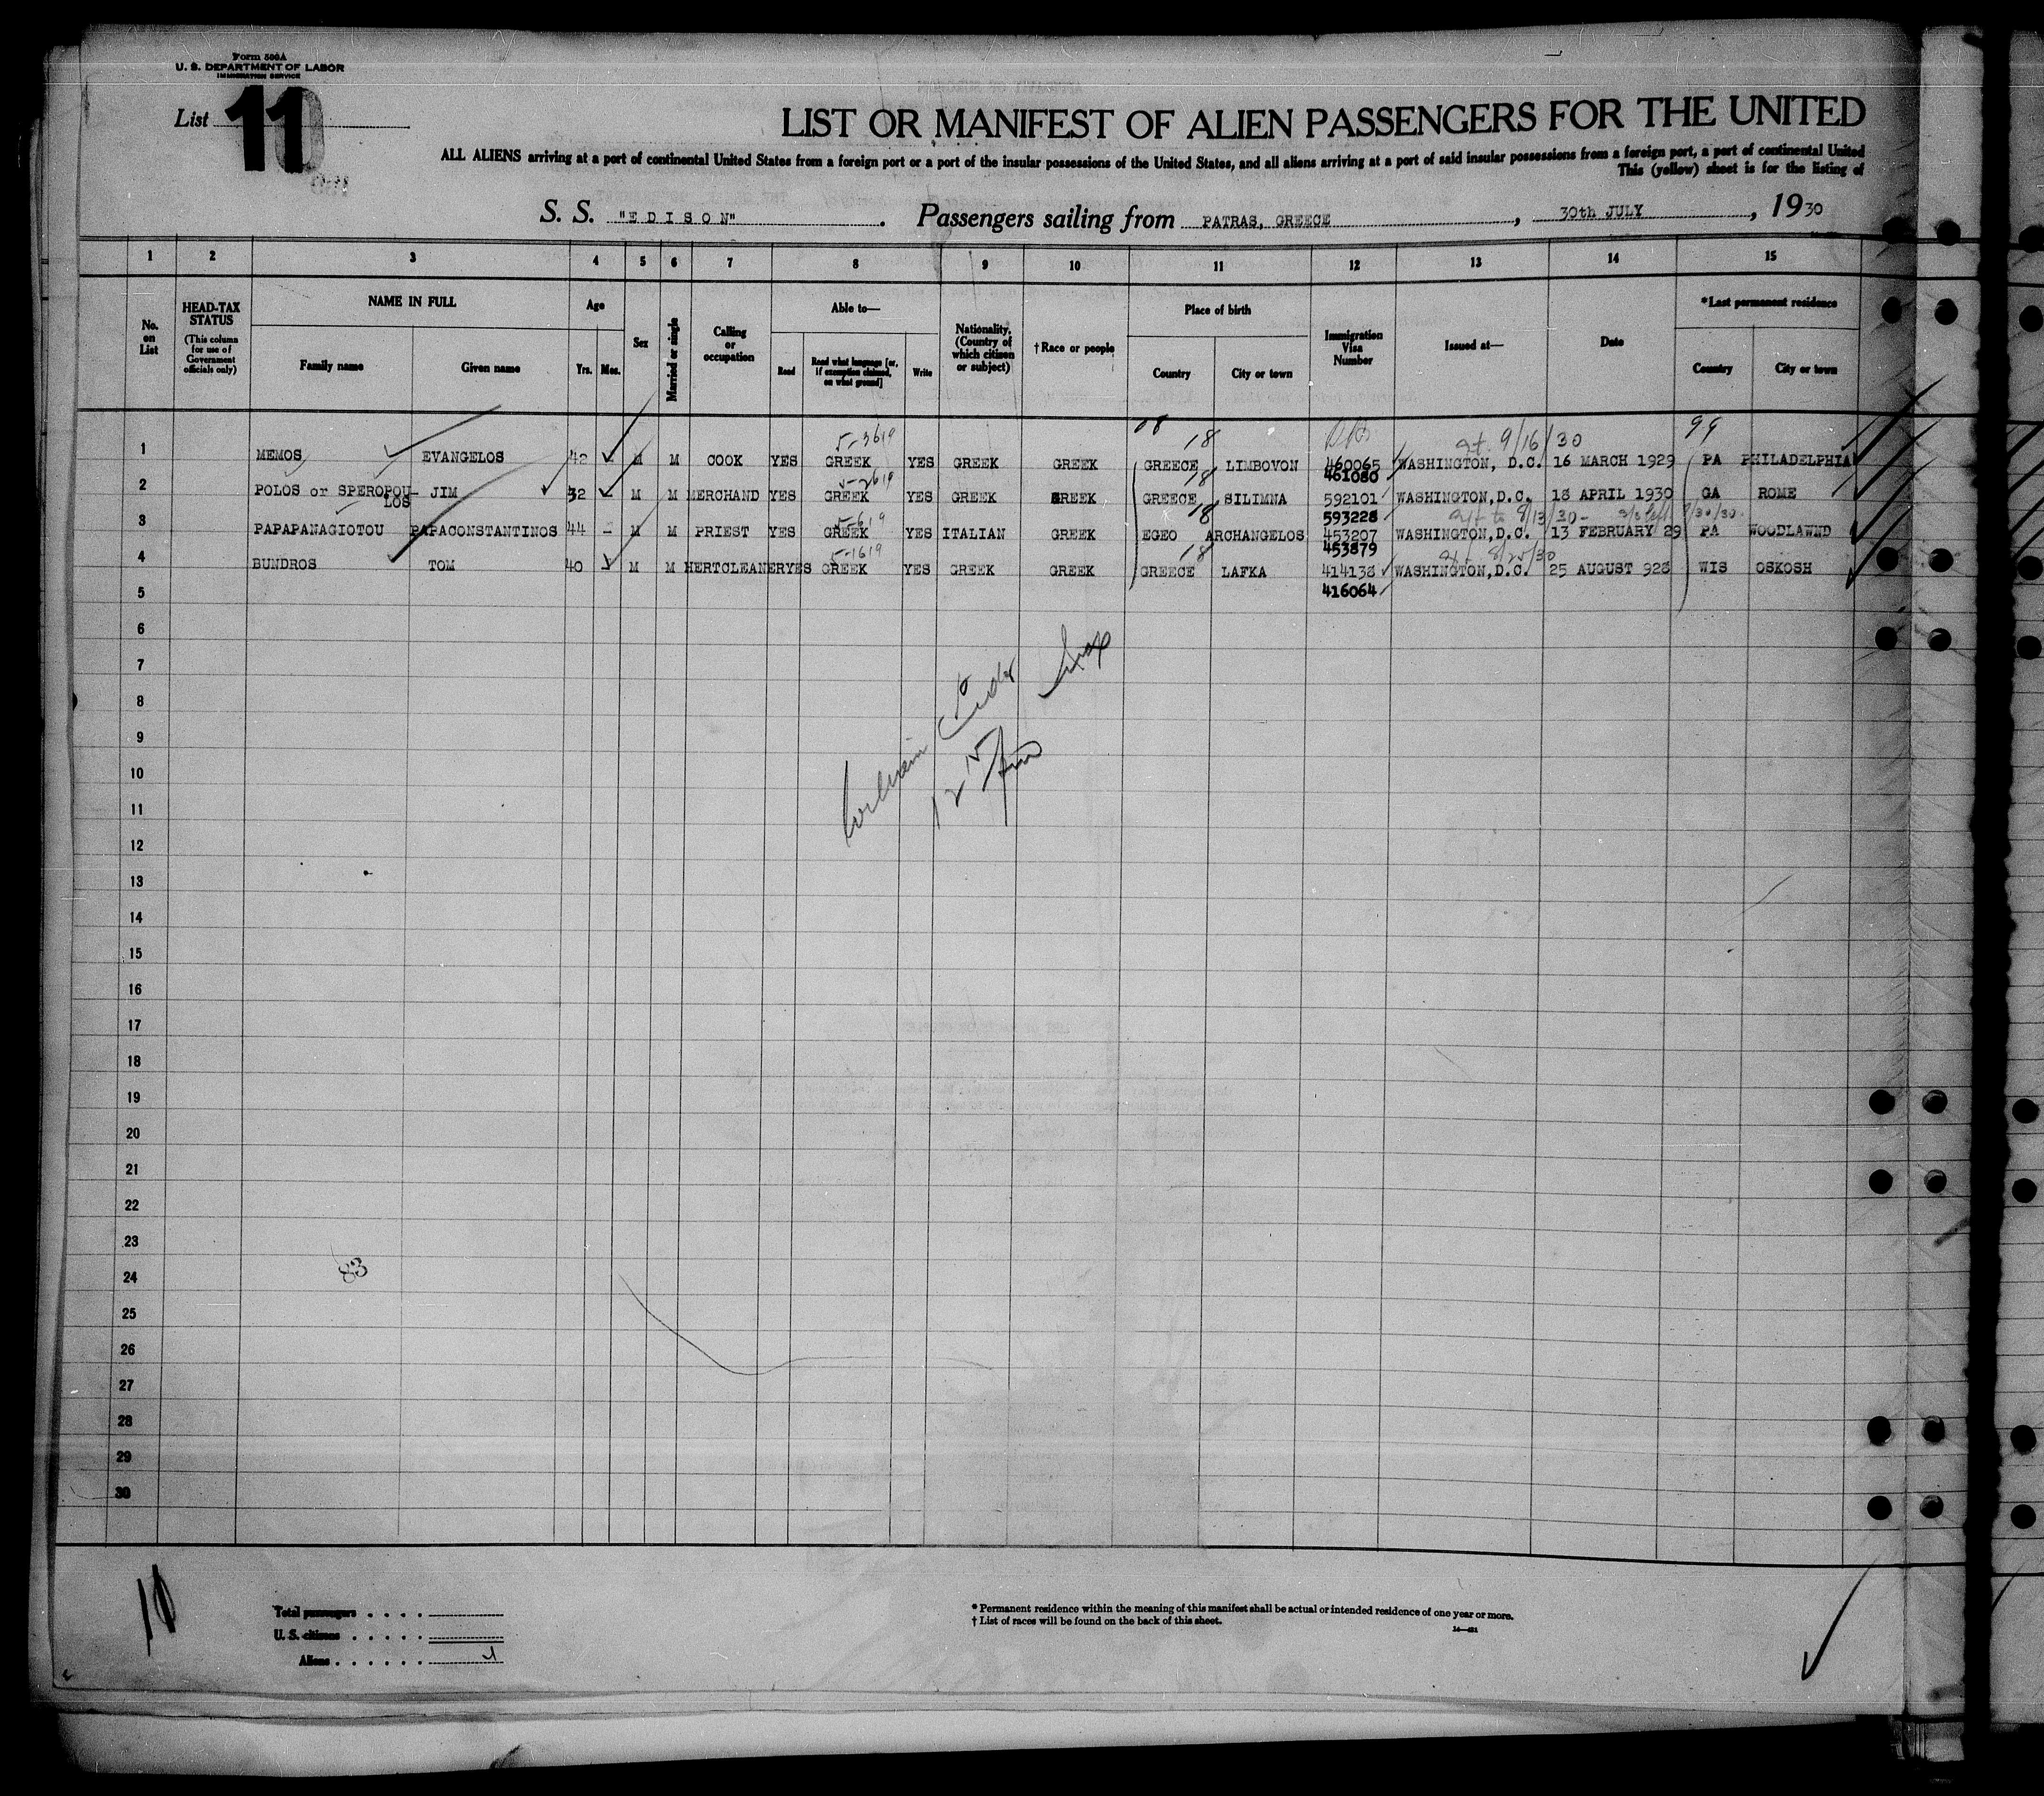 Form 500A
U. S. DEPARTMENT OF LABOR
IMMIGRATION SERVICE
List 11
LIST OR MANIFEST OF ALIEN PASSENGERS FOR THE UNITED
ALL ALIENS arriving at a port of continental United States from a foreign port or a port of the insular possessions of the United States, and all aliens arriving at a port of said insular possessions from a foreign port, a port of continental United
This (yellow) sheet is for the listing of
S. S. "EDISON". Passengers sailing from PATRAS, GREECE, 30th JULY, 1930
1 2 3 4 5 6 7 8 9 10 11 12 13 14 15
No. on List
HEAD-TAX STATUS
(This column for use of Government officials only)
NAME IN FULL
Family name
Given name
Age
Yrs. Mos.
Sex
Married or single
Calling or occupation
Able to—
Read
Read what language [or, if exemption claimed, on what ground]
Write
Nationality. (Country of which citizen or subject)
† Race or people
Place of birth
Country
City or town
Immigration Visa Number
Issued at—
Date
*Last permanent residence
Country
City or town
08 18 9/16/30 99
5-3619
1 MEMOS EVANGELOS 42 – M M COOK YES GREEK YES GREEK GREEK GREECE LIMBOVON 460065 WASHINGTON, D.C. 16 MARCH 1929 PA PHILADELPHIA
5-2619 18 461080
2 POLOS or SPEROPOU- JIM 32 – M M MERCHAND YES GREEK YES GREEK GREEK GREECE SILIMNA 592101 WASHINGTON,D.C. 18 APRIL 1930 GA ROME
LOS 18 593228 8/13/30
5-619
3 PAPAPANAGIOTOU PAPACONSTANTINOS 44 – M M PRIEST YES GREEK YES ITALIAN GREEK EGEO ARCHANGELOS 453207 WASHINGTON,D.C. 13 FEBRUARY 29 PA WOODLAWND
5-1619 18 453879 8/25/30
4 BUNDROS TOM 40 – M M HERTCLEANER YES GREEK YES GREEK GREEK GREECE LAFKA 414138 WASHINGTON,D.C. 25 AUGUST 928 WIS OSKOSH
5 416064
6
7
8
9
10
11
12
13
14
15
16
17
18
19
20
21
22
23
83
24
25
26
27
28
29
30
Total passengers
U. S. citizens
Aliens
* Permanent residence within the meaning of this manifest shall be actual or intended residence of one year or more.
† List of races will be found on the back of this sheet.